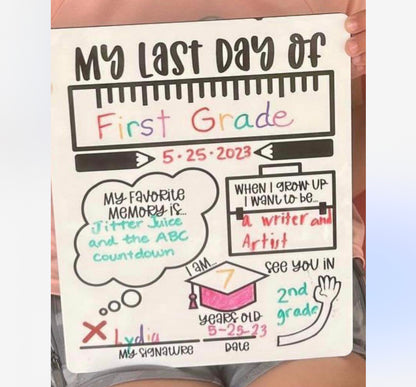 My Last Day of
First Grade
5·25·2023
My Favorite
Memory is...
Jitter Juice
and the ABC
countdown
When I grow up
I want to be...
a writer and
Artist
I am...
7
years old
See you in
2nd
grade
X Lydia
My Signature
5-25-23
Date